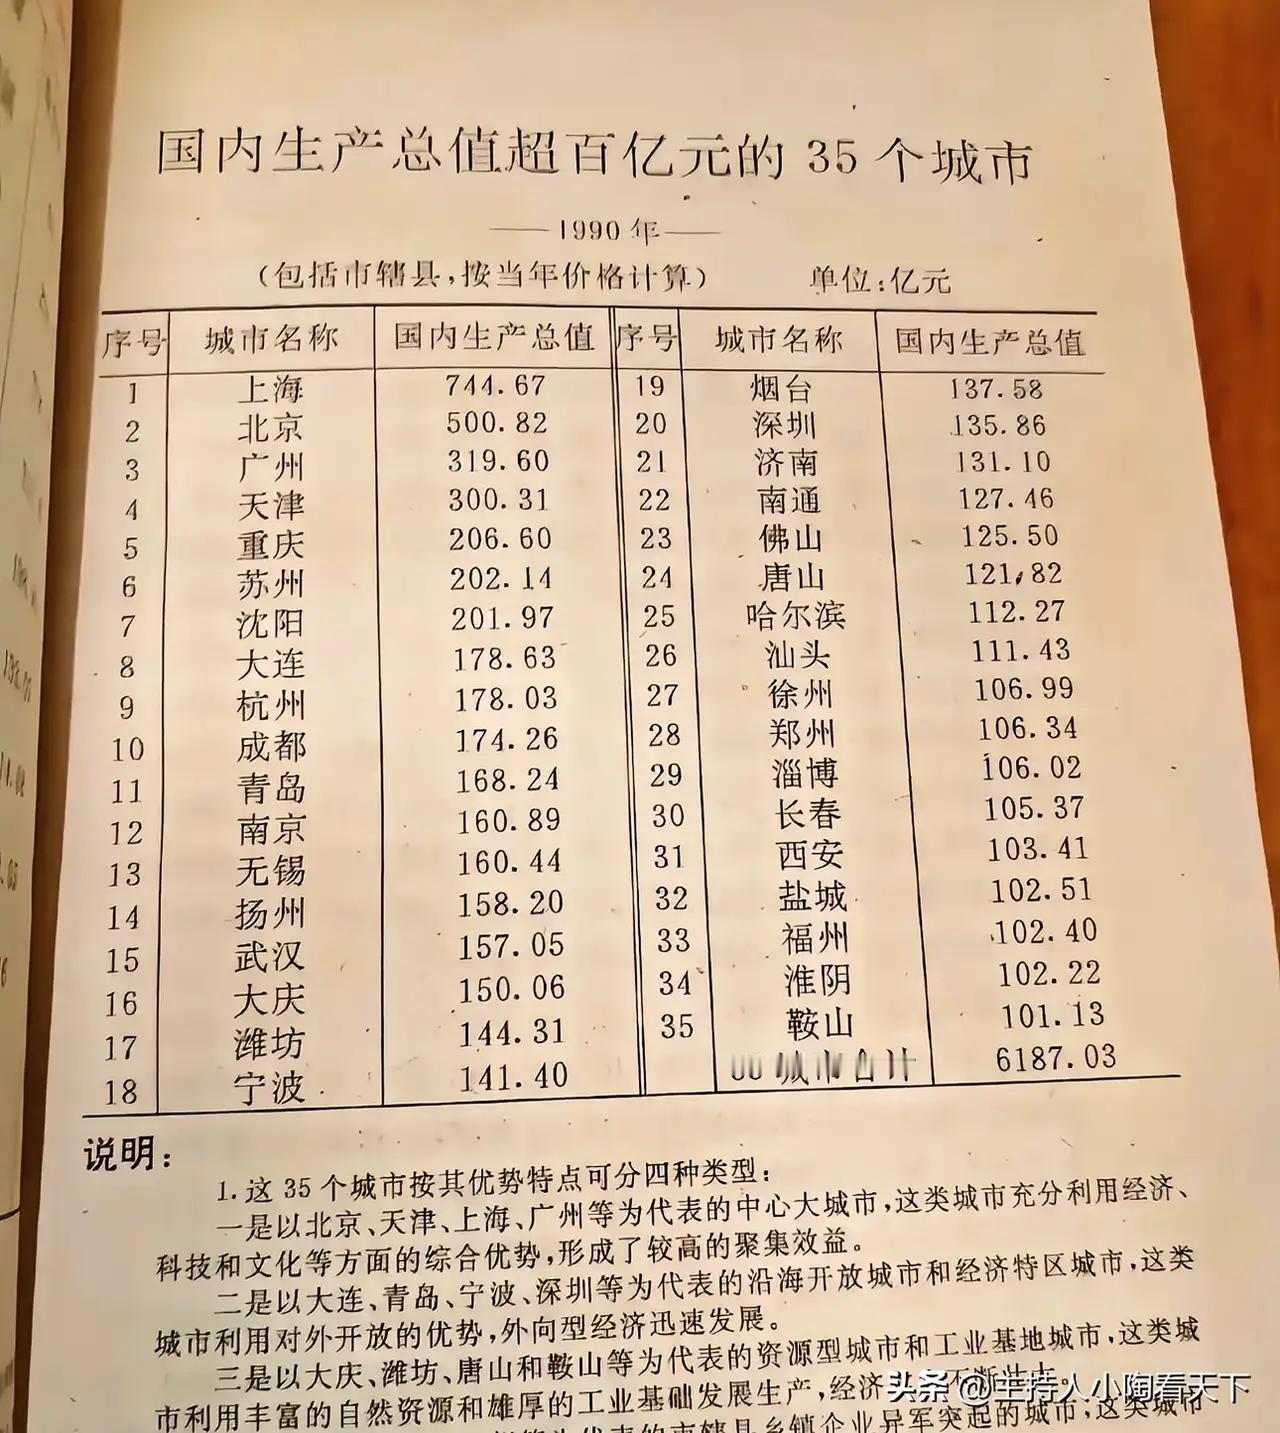 国内生产总值超百亿元的 35 个城市
——1990 年——
(包括市辖县,按当年价格计算) 单位:亿元
序号 城市名称 国内生产总值 序号 城市名称 国内生产总值
1 上海 744.67 19 烟台 137.58
2 北京 500.82 20 深圳 135.86
3 广州 319.60 21 济南 131.10
4 天津 300.31 22 南通 127.46
5 重庆 206.60 23 佛山 125.50
6 苏州 202.14 24 唐山 121.82
7 沈阳 201.97 25 哈尔滨 112.27
8 大连 178.63 26 汕头 111.43
9 杭州 178.03 27 徐州 106.99
10 成都 174.26 28 郑州 106.34
11 青岛 168.24 29 淄博 106.02
12 南京 160.89 30 长春 105.37
13 无锡 160.44 31 西安 103.41
14 扬州 158.20 32 盐城 102.51
15 武汉 157.05 33 福州 102.40
16 大庆 150.06 34 淮阴 102.22
17 潍坊 144.31 35 鞍山 101.13
18 宁波 141.40 城市合计 6187.03
说明:
1.这 35 个城市按其优势特点可分四种类型:
一是以北京、天津、上海、广州等为代表的中心大城市,这类城市充分利用经济、
科技和文化等方面的综合优势,形成了较高的聚集效益。
二是以大连、青岛、宁波、深圳等为代表的沿海开放城市和经济特区城市,这类
城市利用对外开放的优势,外向型经济迅速发展。
三是以大庆、潍坊、唐山和鞍山等为代表的资源型城市和工业基地城市,这类城
市利用丰富的自然资源和雄厚的工业基础发展生产,经济
为代表的市辖县乡镇企业异军突起的城市,这类城市
头条 @主持人小陶看天下